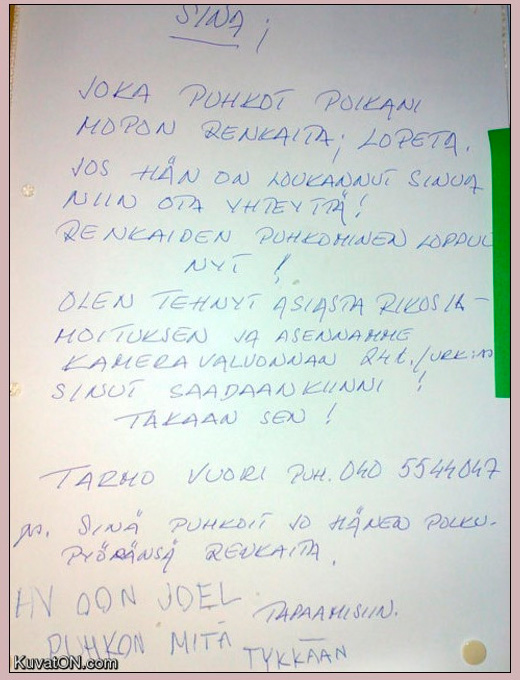 SINÄ ;
JOKA PUHKOT POIKANI
MOPON RENKAITA; LOPETA.
JOS HÄN ON LOUKANNUT SINUA
NIIN OTA YHTEYTTÄ!
RENKAIDEN PUHKOMINEN LOPPUU
NYT !
OLEN TEHNYT ASIASTA RIKOSIL-
MOITUKSEN JA ASENNAMME
KAMERAVALVONNAN 24t./VRK:
SINUT SAADAAN KIINNI !
TAKAAN SEN !
TARMO VUORI PUH. 040 5544047
ps. SINÄ PUHKOIT JO HÄNEN POLKU-
PYÖRÄNSÄ RENKAITA.
HV OON JOEL.
TAPAAMISIIN.
PUHKON MITÄ
TYKKÄÄN
KuvatON.com